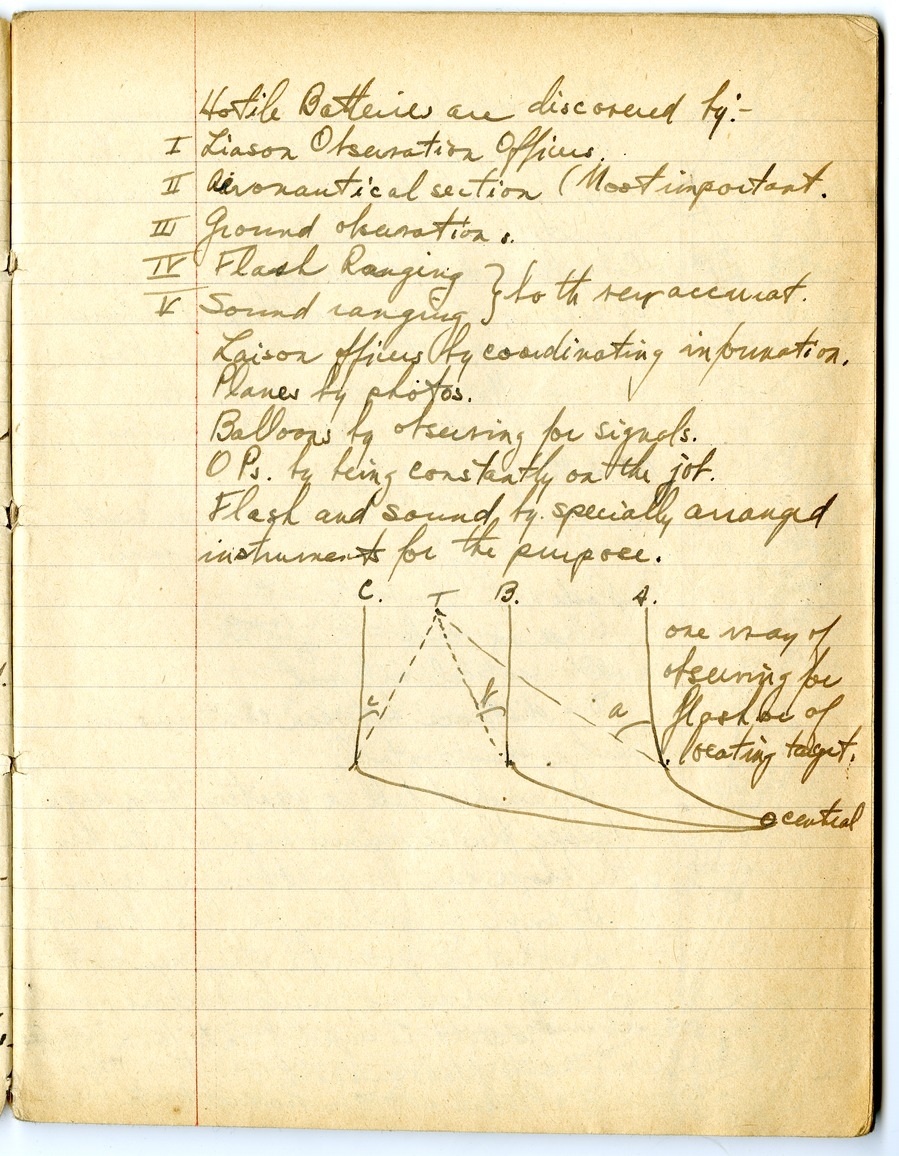 Hostile Batteries are discovered by:-
I Liason Observation Officers.
II Aironautical section (Most important.
III Ground observations.
IV Flash Ranging } both very accurat.
V Sound ranging
Laison officers by coordinating information.
Planes by photos.
Balloons by observing for signals.
O Ps. by being constantly on the job.
Flash and sound by specially arranged
instruments for the purpose.
C. T B. A.
one way of
observing for
flash or of
locating target.
c b a
central